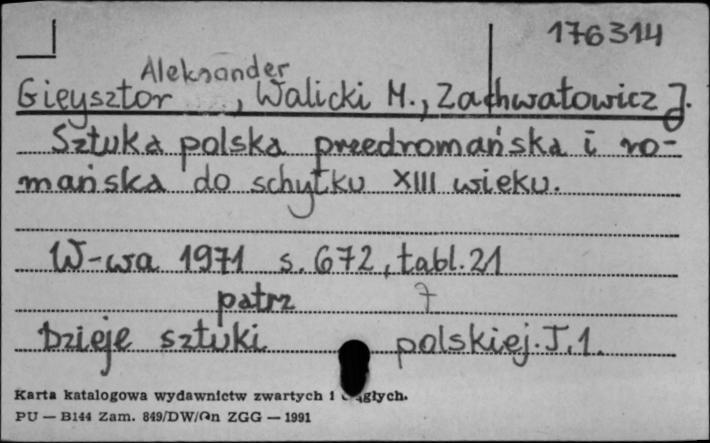 176314
Aleksander
Gieysztor , Walicki M., Zachwatowicz J.
Sztuka polska przedromańska i ro-
mańska do schyłku XIII wieku.
W-wa 1971 s. 672, tabl. 21
patrz 7
Dzieje sztuki polskiej. T. 1.
Karta katalogowa wydawnictw zwartych i
PU — B144 Zam. 849/DW/ ZGG — 1991